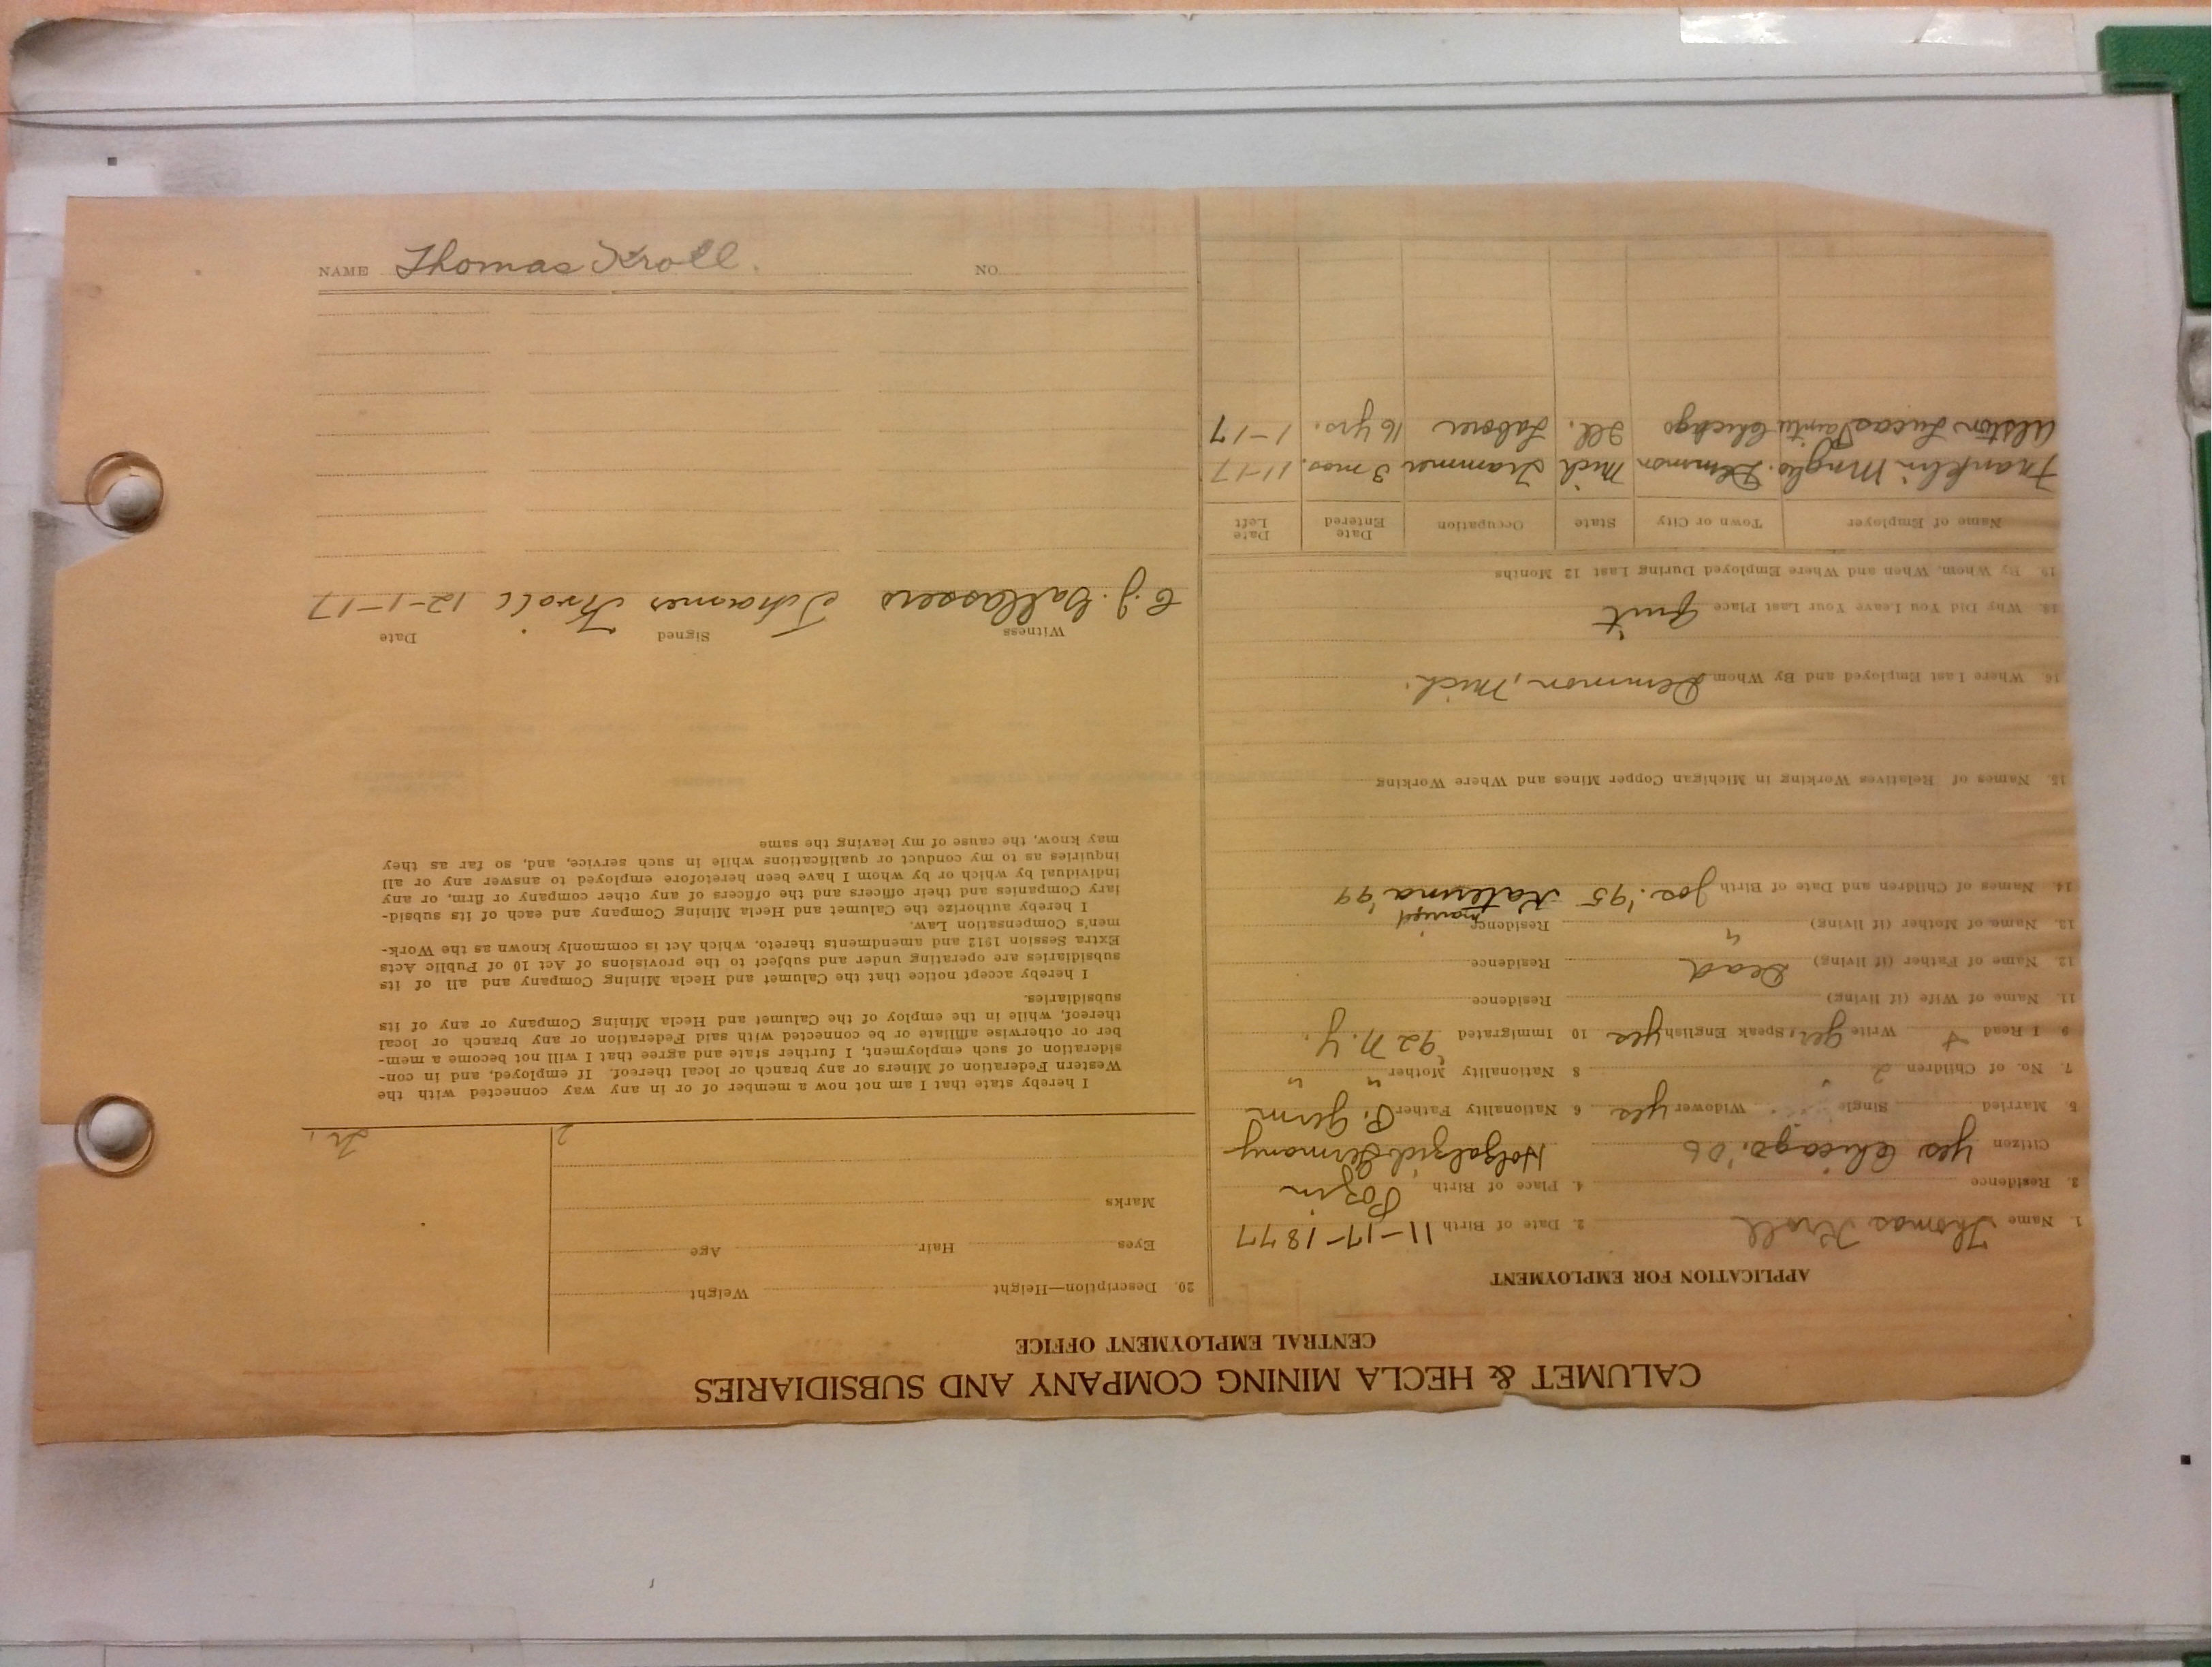 CALUMET & HECLA MINING COMPANY AND SUBSIDIARIES
CENTRAL EMPLOYMENT OFFICE
APPLICATION FOR EMPLOYMENT
1. Name Thomas Kroll 2. Date of Birth 11-17-1877
3. Residence 4. Place of Birth Pozin
Citizen yes Chicago '06 Germany
5. Married Single Widower yes 6 Nationality Father P. Germ
7. No. of Children 2 8 Nationality Mother " "
9 I Read + Write Ger. Speak English yes 10 Immigrated '92 N.Y.
11. Name of Wife (if living) Residence
12. Name of Father (if living) Dead Residence
13. Name of Mother (if living) " Residence
married
14. Names of Children and Date of Birth Jos. '95 Katerina '99
15. Names of Relatives Working in Michigan Copper Mines and Where Working
16. Where Last Employed and By Whom Demmon, Mich.
18. Why Did You Leave Your Last Place Quit
19. By Whom, When and Where Employed During Last 12 Months
Name of Employer Town or City State Occupation Date Entered Date Left
Franklin Mng Co. Demmon Mich Trammer 3 mos. 11-17
Alston Lucas Paint Chicago Ill. Laborer 16 yrs. 1-17
20. Description—Height Weight
Eyes Hair Age
Marks
2
Tr.
I hereby state that I am not now a member of or in any way connected with the
Western Federation of Miners or any branch or local thereof. If employed, and in con-
sideration of such employment, I further state and agree that I will not become a mem-
ber or otherwise affiliate or be connected with said Federation or any branch or local
thereof, while in the employ of the Calumet and Hecla Mining Company or any of its
subsidiaries.
I hereby accept notice that the Calumet and Hecla Mining Company and all of its
subsidiaries are operating under and subject to the provisions of Act 10 of Public Acts
Extra Session 1912 and amendments thereto, which Act is commonly known as the Work-
men's Compensation Law.
I hereby authorize the Calumet and Hecla Mining Company and each of its subsid-
iary Companies and their officers and the officers of any other company or firm, or any
individual by which or by whom I have been heretofore employed to answer any or all
inquiries as to my conduct or qualifications while in such service, and, so far as they
may know, the cause of my leaving the same
Witness Signed Date
C.J. Thomas Kroll 12-1-17
NAME Thomas Kroll. NO.